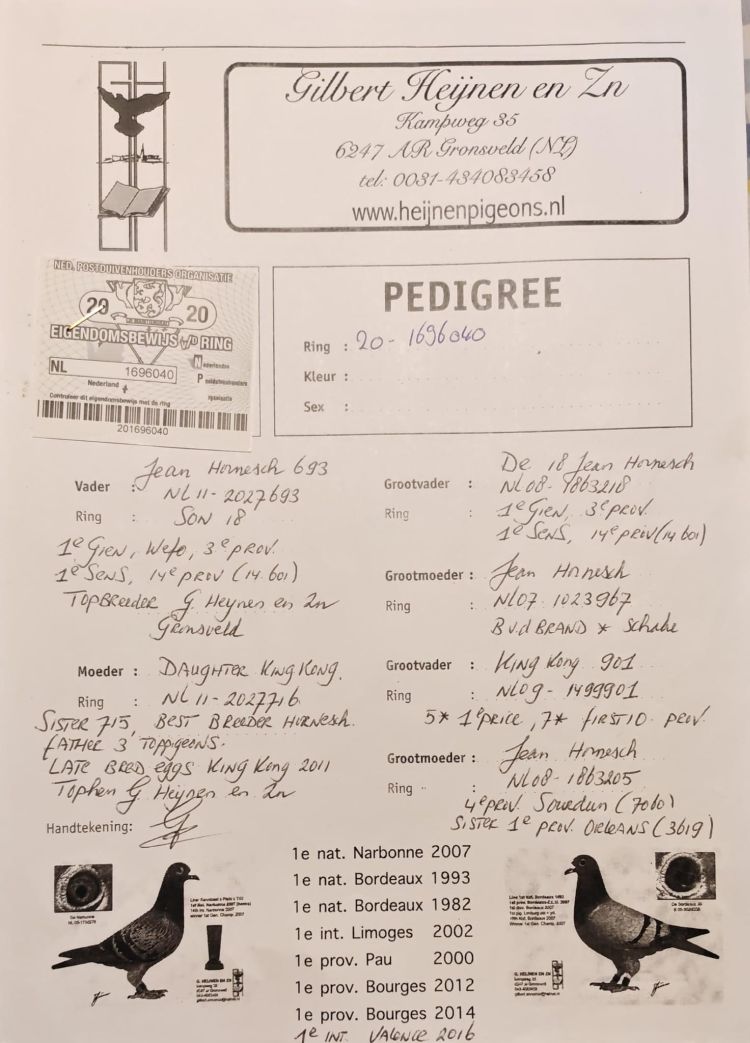 Gilbert Heijnen en Zn
Kampweg 35
6247 AR Gronsveld (NL)
tel: 0031-434083458
www.heijnenpigeons.nl
NED. POSTDUIVENHOUDERS ORGANISATIE
20 20
EIGENDOMSBEWIJS v/d RING
NL 1696040
Nederland
Controleer dit eigendomsbewijs met de ring
Nederlandse
Postduivenhouders
Organisatie
201696040
PEDIGREE
Ring : 20-1696040
Kleur :
Sex :
Vader : Jean Hornesch 693
NL11-2027693
Ring : SON 18
1e Gien, Wefo, 3e prov.
1e SENS, 14e prov (14.601)
TOPBREEDER G. Heynen en Zn
Gronsveld
Grootvader : De 18 Jean Hornesch
NL08-1863218
Ring : 1e Gien, 3e prov.
1e SENS, 14e prov (14 601)
Grootmoeder : Jean Hornesch
Ring : NL07-1023967
B v.d BRAND * Schabe
Moeder : DAUGHTER KING KONG.
Ring : NL11-2027716
SISTER 715, BEST BREEDER HORNESH.
FATHER 3 TOPPIGEONS.
LATE BRED eggs KING KONG 2011
Tophen G Heynen en Zn
Handtekening:
Grootvader : KING KONG 901
Ring : NL09-1499901
5* 1e price, 7* FIRST 10. prov.
Grootmoeder : Jean Hornesch
NL08-1863205
Ring :
4e prov. Sourdun (7060)
SISTER 1e prov. ORLEANS (3619)
1e nat. Narbonne 2007
1e nat. Bordeaux 1993
1e nat. Bordeaux 1982
1e int. Limoges 2002
1e prov. Pau 2000
1e prov. Bourges 2012
1e prov. Bourges 2014
1e INT. VALENCE 2016
De Narbonne
G. HEIJNEN EN ZN
De Bordeaux
G. HEIJNEN EN ZN